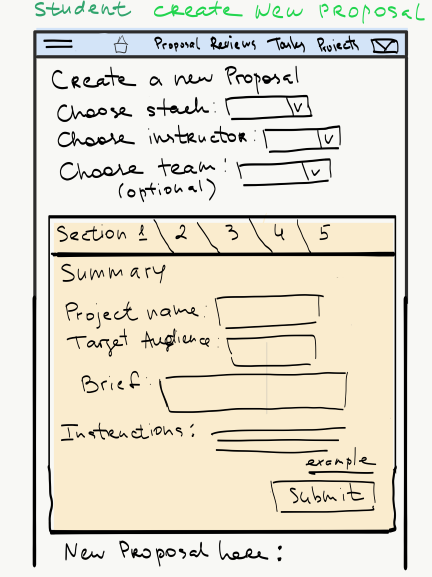 Student create new proposal
Proposal Reviews Tasks Projects
Create a new Proposal
Choose stack:
Choose instructor:
Choose team:
(optional)
Section 1 2 3 4 5
Summary
Project name:
Target Audience:
Brief:
Instructions:
example
Submit
New Proposal here: